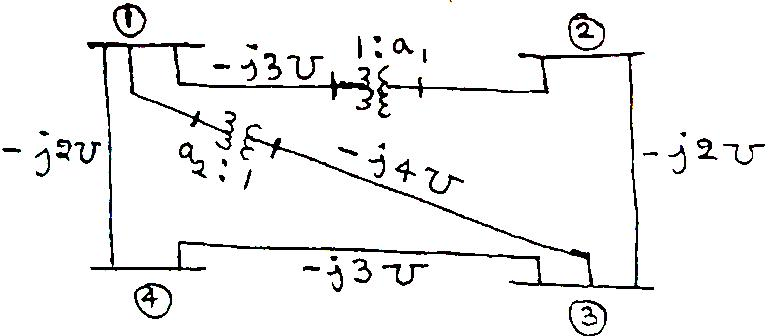 ①
②
-j3υ
1:a₁
-j2υ
a₂:1
-j4υ
-j2υ
-j3υ
④
③